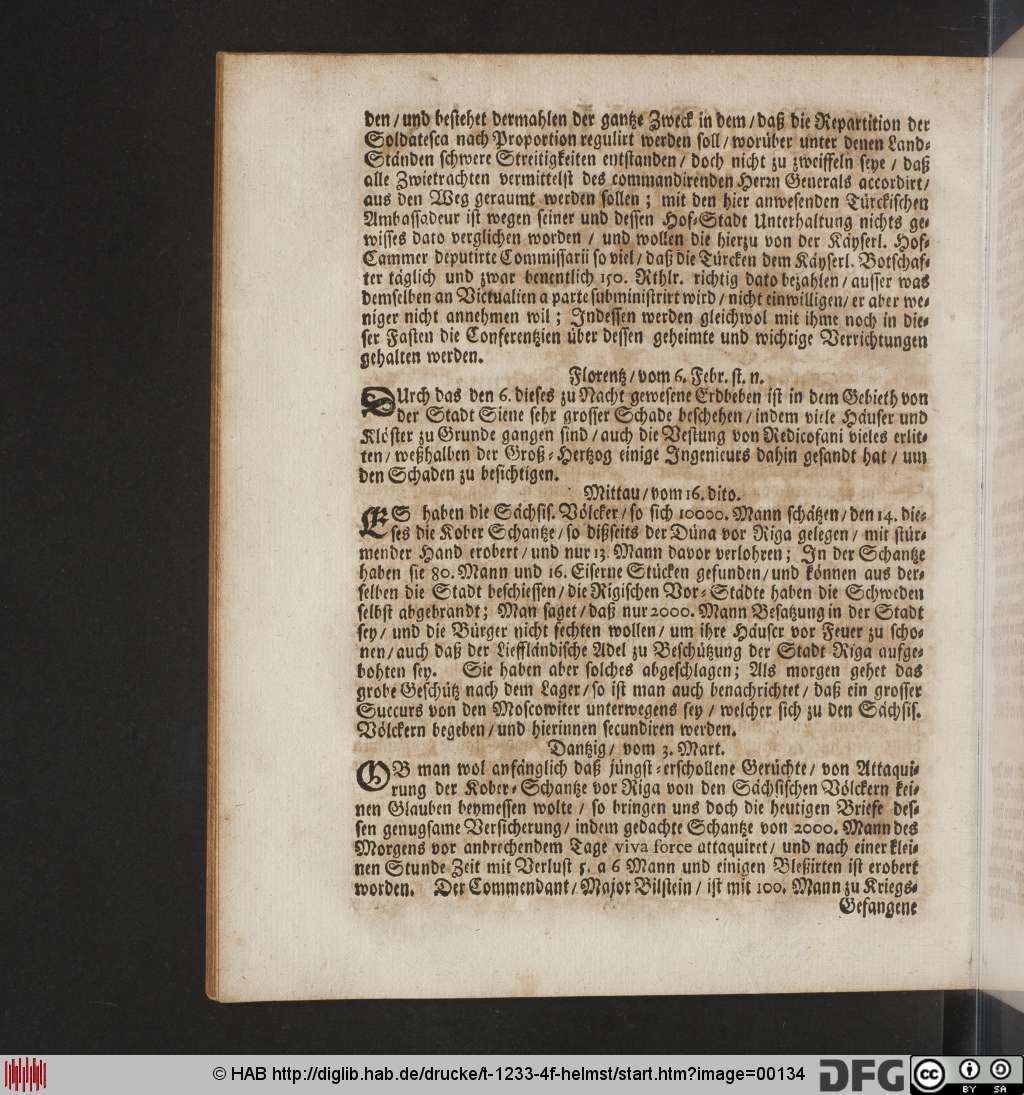 den / und bestehet dermahlen der gantze Zweck in dem / daß die Repartition der
Soldatesca nach Proportion regulirt werden soll / worüber unter denen Land-
Ständen schwere Streitigkeiten entstanden / doch nicht zu zweiffeln seye / daß
alle Zwietrachten vermittelst des commandirenden Herrn Generals accordirt /
aus den Weg geraumt werden sollen ; mit den hier anwesenden Türckischen
Ambassadeur ist wegen seiner und dessen Hof-Stadt Unterhaltung nichts ge-
wisses dato verglichen worden / und wollen die hierzu von der Käyserl. Hof-
Cammer deputirte Commissarii so viel / daß die Türcken dem Käyserl. Botschaf-
ter täglich und zwar benentlich 150. Rthlr. richtig dato bezahlen / ausser was
demselben an Victualien a parte subministrirt wird / nicht einwilligen / er aber we-
niger nicht annehmen wil ; Indessen werden gleichwol mit ihme noch in die-
ser Fasten die Conferentzien über dessen geheimte und wichtige Verrichtungen
gehalten werden.
Florentz / vom 6. Febr. st. n.
DUrch das den 6. dieses zu Nacht gewesene Erdbeben ist in dem Gebieth von
der Stadt Siene sehr grosser Schade beschehen / indem viele Häuser und
Klöster zu Grunde gangen sind / auch die Vestung von Redicofani vieles erlit-
ten / weßhalben der Groß-Hertzog einige Ingenieurs dahin gesandt hat / um
den Schaden zu besichtigen.
Mittau / vom 16. dito.
ES haben die Sächsis. Völcker / so sich 10000. Mann schätzen / den 14. die-
ses die Kober Schantze / so dißseits der Düna vor Riga gelegen / mit stür-
mender Hand erobert / und nur 13. Mann davor verlohren ; In der Schantze
haben sie 80. Mann und 16. Eiserne Stücken gefunden / und können aus der-
selben die Stadt beschiessen / die Rigischen Vor-Städte haben die Schweden
selbst abgebrandt ; Man saget / daß nur 2000. Mann Besatzung in der Stadt
sey / und die Bürger nicht fechten wollen / um ihre Häuser vor Feuer zu scho-
nen / auch daß der Lieffländische Adel zu Beschützung der Stadt Riga aufge-
bohten sey. Sie haben aber solches abgeschlagen ; Als morgen gehet das
grobe Geschütz nach dem Lager / so ist man auch benachrichtet / daß ein grosser
Succurs von den Moscowiter unterwegens sey / welcher sich zu den Sächsis.
Völckern begeben / und hierinnen secundiren werden.
Dantzig / vom 3. Mart.
OB man wol anfänglich daß jüngst-erschollene Gerüchte / von Attaqui-
rung der Kober-Schantze vor Riga von den Sächsischen Völckern kei-
nen Glauben beymessen wolte / so bringen uns doch die heutigen Briefe des-
sen genugsame Versicherung / indem gedachte Schantze von 2000. Mann des
Morgens vor anbrechendem Tage viva force attaquiret / und nach einer klei-
nen Stunde Zeit mit Verlust 5. a 6 Mann und einigen Bleßirten ist erobert
worden. Der Commendant / Major Bilstein / ist mit 100. Mann zu Kriegs-
Gefangene
© HAB http://diglib.hab.de/drucke/t-1233-4f-helmst/start.htm?image=00134
DFG
cc BY SA